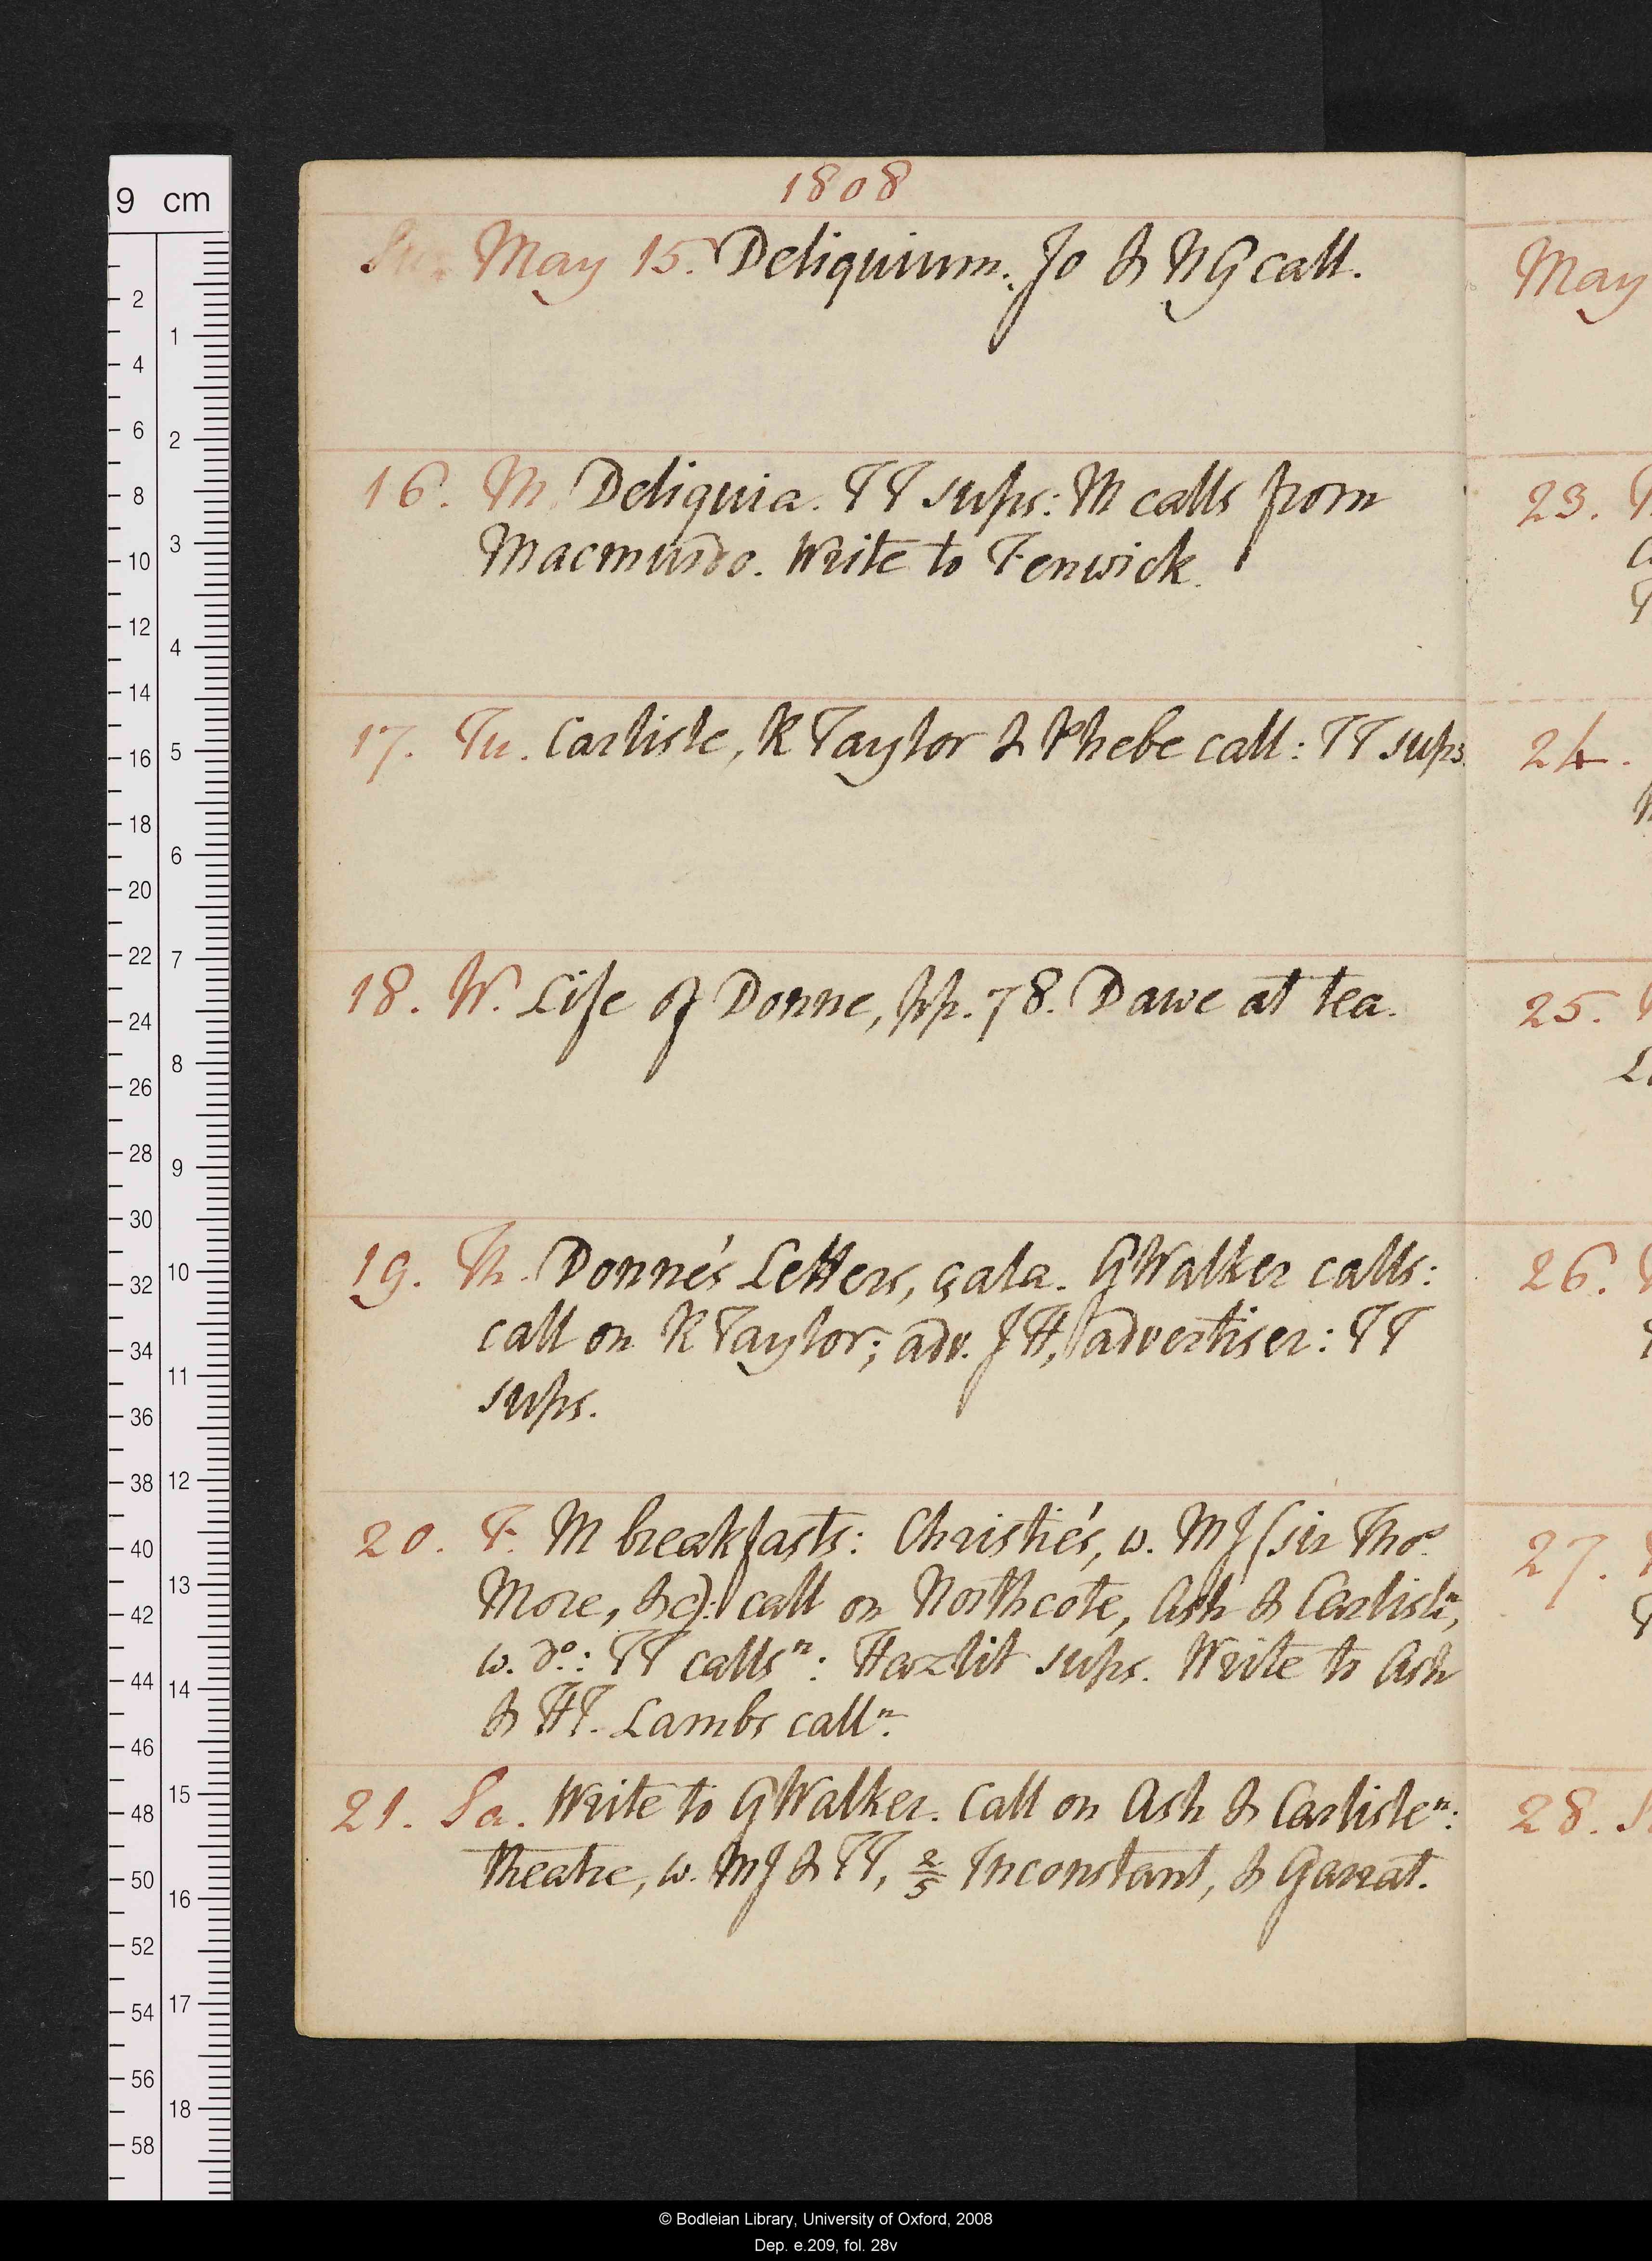 1808
Su. May 15. Deliquium. Jo & NG call.
16. M. Deliquia. TT sups: M calls from
Macmurdo. Write to Fenwick.
17. Tu. Carlisle, R Taylor & Phebe call: TT sups.
18. W. Life of Donne, pp. 78. Dawe at tea.
19. Th. Donne's Letters, çala. GWalker calls:
call on R Taylor; adv. JH, advertiser: TT
sups.
20. F. M breakfasts: Christie's, w. MJ (Sir Tho.
More, &c): call on Northcote, Ash & Carlisle n,
w. do.: TT calls n: Hazlit sups. Write to Ash
& HT. Lambs call n.
21. Sa. Write to GWalker. Call on Ash & Carlisle n:
theatre, w. MJ & TT, 2/5 Inconstant, & Garrat.
May
23.
24.
25.
26.
27.
28.
9 cm
2
4
6
8
10
12
14
16
18
20
22
24
26
28
30
32
34
36
38
40
42
44
46
48
50
52
54
56
58
1
2
3
4
5
6
7
8
9
10
11
12
13
14
15
16
17
18
© Bodleian Library, University of Oxford, 2008
Dep. e.209, fol. 28v